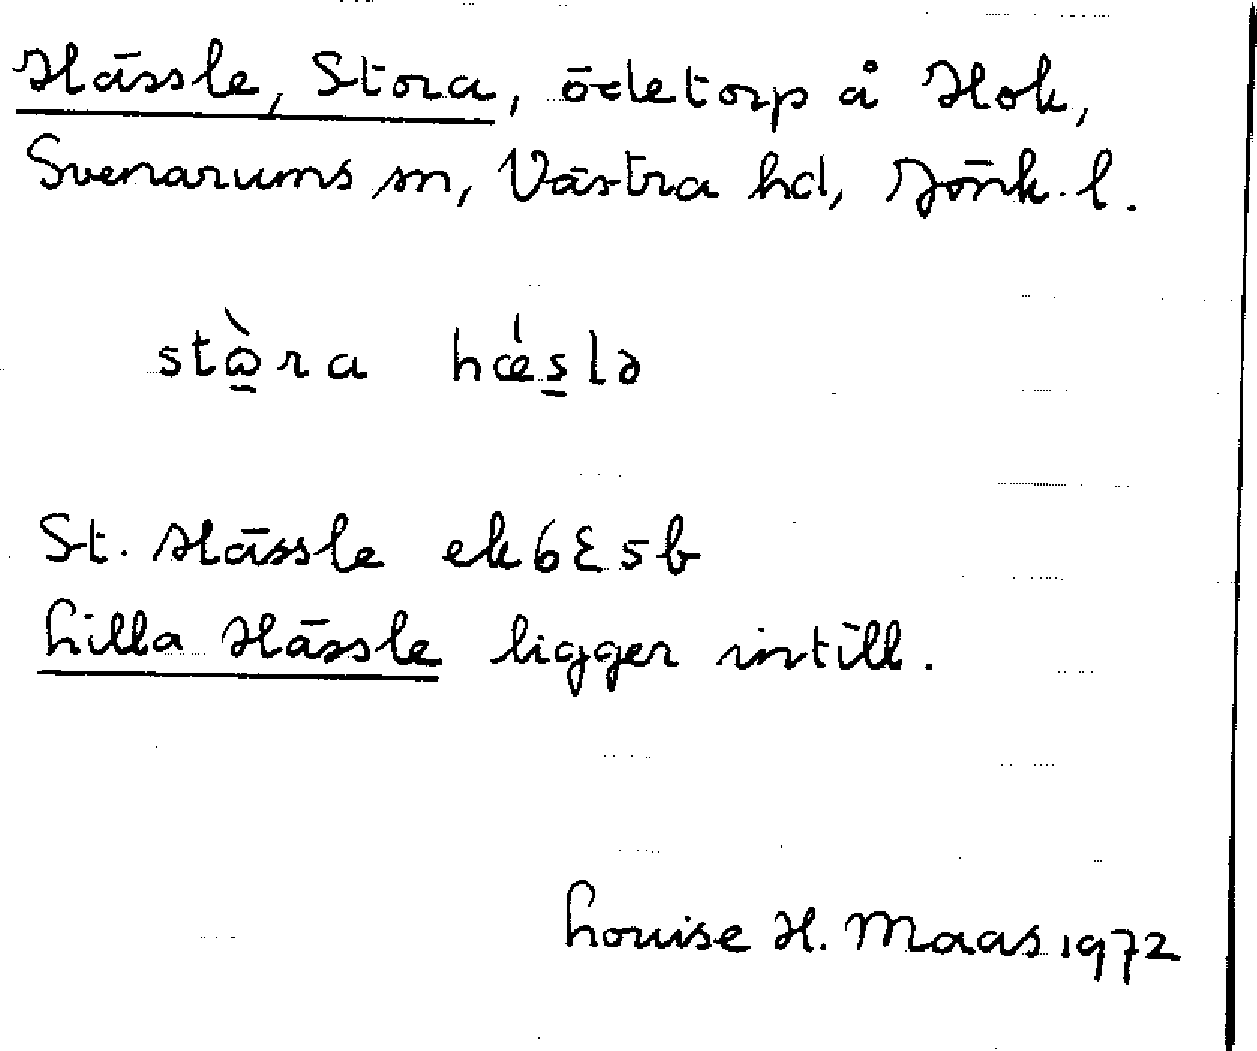 Hässle, Stora, ödetorp å Hok,
Svenarums sn, Västra hd, Jönk. l.
stὼ̱ra hǽs̱lə
St. Hässle ek 6E5b
Lilla Hässle ligger intill.
Louise H. Maas 1972